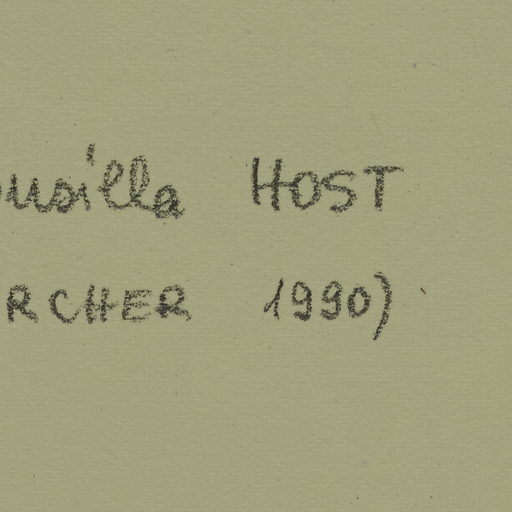 usilla HOST
RCHER 1990)